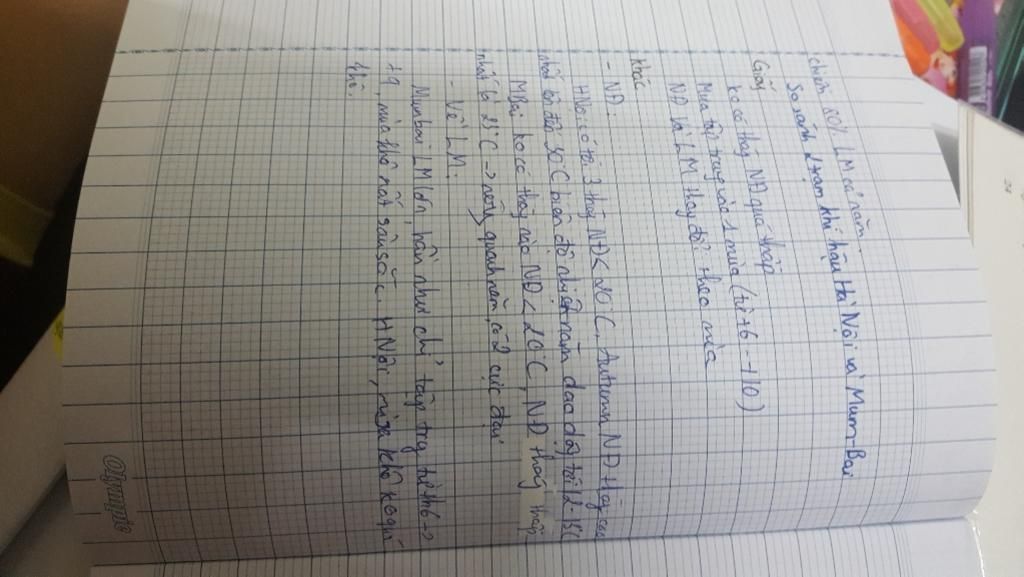 chiếm 80% LM cả năm.
So sánh 2 trạm khí hậu Hà Nội và Mum-Bai
Giống
ko có tháng NĐ quá thấp
Mưa tập trung vào 1 mùa (từ t6 → t10)
NĐ và LM thay đổi theo mùa
khác
- NĐ:
HNội có tới 3 tháng NĐ < 20°C, NĐ tháng cao
nhất lên đến 30°C biên độ nhiệt năm dao động tới 12-15°C
MBai ko có tháng nào NĐ < 20°C, NĐ tháng thấp
nhất là 23°C → nóng quanh năm, có 2 cực đại
- Về LM.
Mumbai LM lớn, hầu như chỉ tập trg từ th6 →
t9, mùa khô rất sâu sắc. HNội, mùa khô ko quá
khô.
Olympic